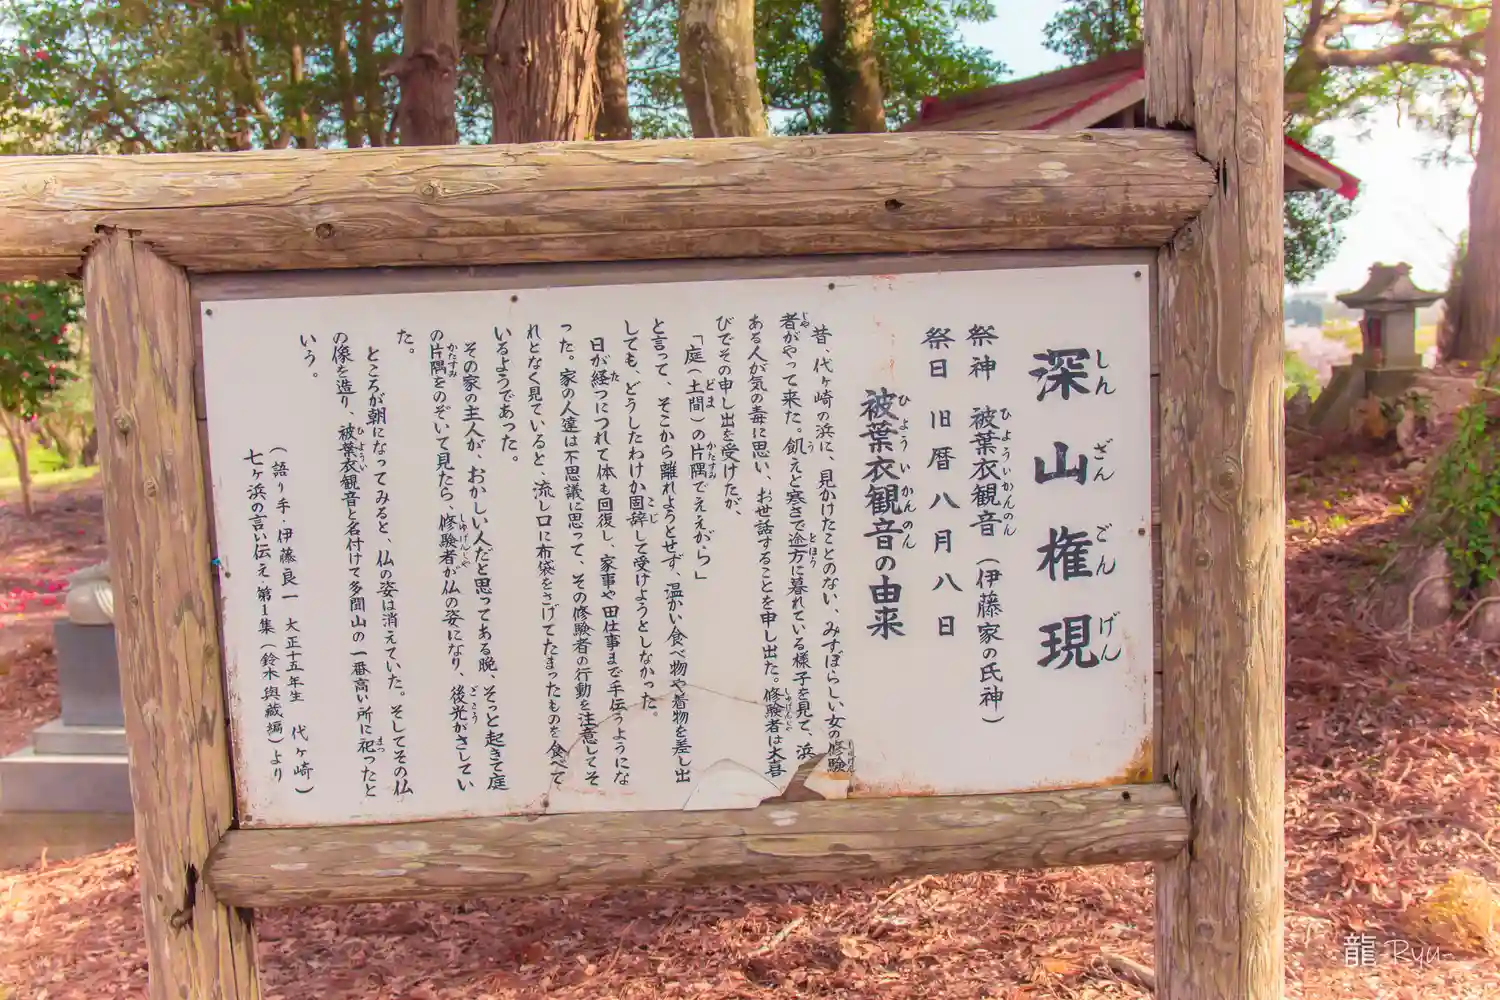 深山権現
しんざんごんげん
祭神 被葉衣観音（伊藤家の氏神）
ひよういかんのん
祭日 旧暦八月八日
被葉衣観音の由来
ひよういかんのん
昔、代ヶ崎の浜に、見かけたことのない、みすぼらしい女の修験
しゅげん
者がやって来た。飢えと寒さで途方に暮れている様子を見て、浜
じゃ う とほう
ある人が気の毒に思い、お世話することを申し出た。修験者は大喜
しゅげんじゃ
びでその申し出を受けたが、
「庭（土間）の片隅でええがら」
どま かたすみ
と言って、そこから離れようとせず、温かい食べ物や着物を差し出
しても、どうしたわけか固辞して受けようとしなかった。
こじ
日が経つにつれて体も回復し、家事や田仕事まで手伝うようにな
た
った。家の人達は不思議に思って、その修験者の行動を注意してそ
れとなく見ていると、流し口に布袋をさげてたまったものを食べて
いるようであった。
その家の主人が、おかしい人だと思ってある晩、そっと起きて庭
の片隅をのぞいて見たら、修験者が仏の姿になり、後光がさしてい
かたすみ しゅげんじゃ ごこう
た。
ところが朝になってみると、仏の姿は消えていた。そしてその仏
の像を造り、被葉衣観音と名付けて多聞山の一番高い所に祀ったと
ひようい まつ
いう。
（語り手・伊藤良一 大正十五年生 代ヶ崎）
七ヶ浜の言い伝え・第1集（鈴木與蔵編）より
龍 Ryu